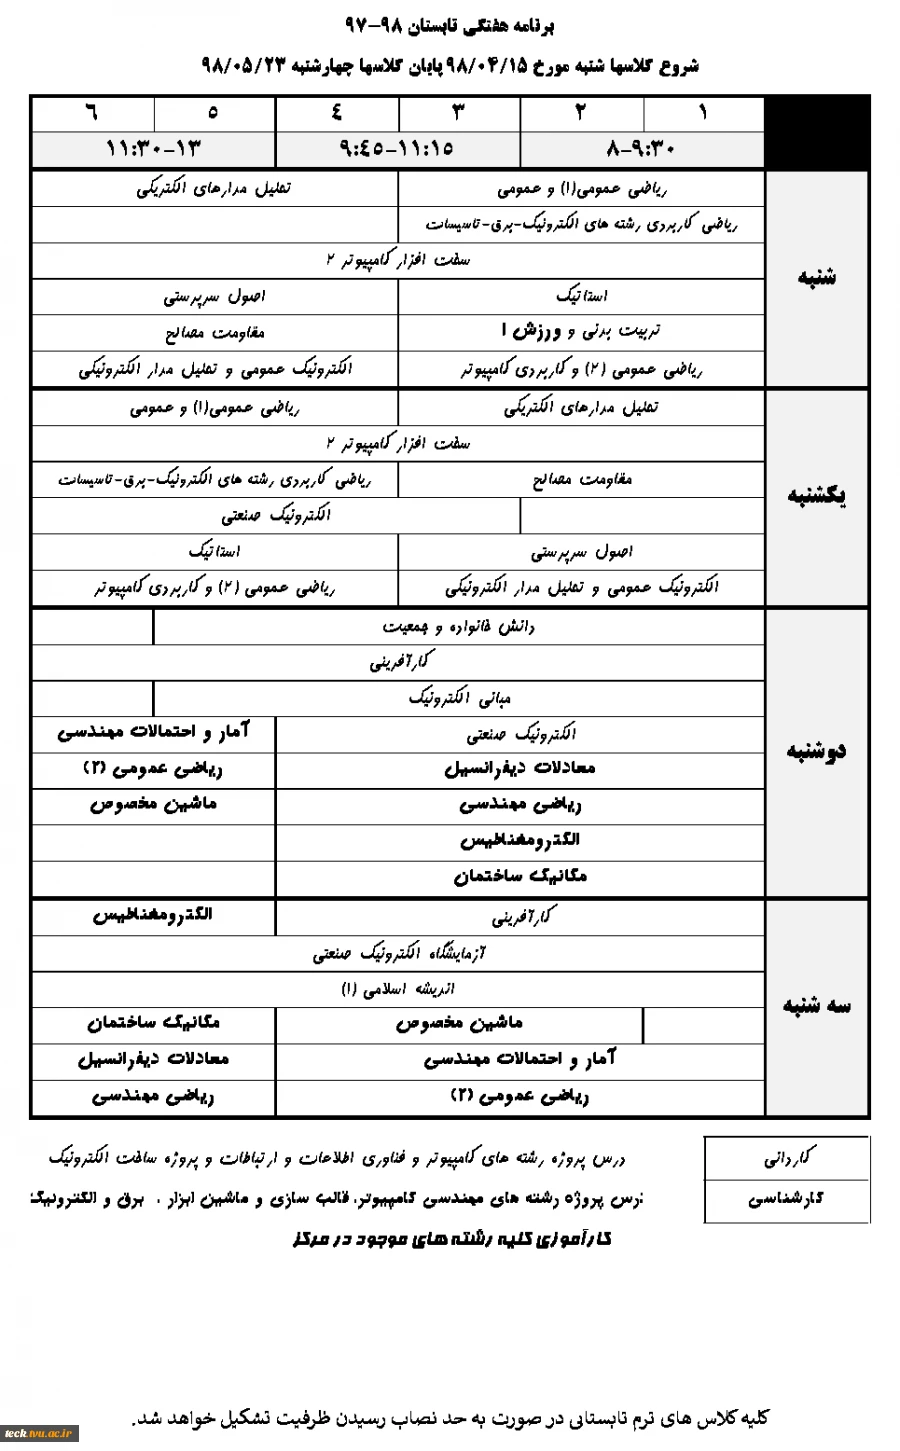 برنامه هفتگی تابستان ۹۸-۹۷
شروع کلاسها شنبه مورخ ۹۸/۰۴/۱۵ پایان کلاسها چهارشنبه ۹۸/۰۵/۲۳
۱ ۲ ۳ ٤ ۵ ٦
۸-۹:۳۰ ۹:٤۵-۱۱:۱۵ ۱۱:۳۰-۱۳
شنبه
ریاضی عمومی(۱) و عمومی تحلیل مدارهای الکتریکی
ریاضی کاربردی رشته های الکترونیک-برق-تاسیسات
سخت افزار کامپیوتر ۲
استاتیک اصول سرپرستی
تربیت بدنی و ورزش ۱ مقاومت مصالح
ریاضی عمومی (۲) و کاربردی کامپیوتر الکترونیک عمومی و تحلیل مدار الکترونیکی
یکشنبه
تحلیل مدارهای الکتریکی ریاضی عمومی(۱) و عمومی
سخت افزار کامپیوتر ۲
مقاومت مصالح ریاضی کاربردی رشته های الکترونیک-برق-تاسیسات
الکترونیک صنعتی
اصول سرپرستی استاتیک
الکترونیک عمومی و تحلیل مدار الکترونیکی ریاضی عمومی (۲) و کاربردی کامپیوتر
دوشنبه
دانش خانواده و جمعیت
کارآفرینی
مبانی الکترونیک
الکترونیک صنعتی آمار و احتمالات مهندسی
معادلات دیفرانسیل ریاضی عمومی (۲)
ریاضی مهندسی ماشین مخصوص
الکترومغناطیس
مکانیک ساختمان
سه شنبه
کارآفرینی الکترومغناطیس
آزمایشگاه الکترونیک صنعتی
اندیشه اسلامی (۱)
ماشین مخصوص مکانیک ساختمان
آمار و احتمالات مهندسی معادلات دیفرانسیل
ریاضی عمومی (۲) ریاضی مهندسی
کاردانی درس پروژه رشته های کامپیوتر و فناوری اطلاعات و ارتباطات و پروژه ساخت الکترونیک
کارشناسی درس پروژه رشته های مهندسی کامپیوتر، قالب سازی و ماشین ابزار ، برق و الکترونیک
کارآموزی کلیه رشته های موجود در مرکز
کلیه کلاس های ترم تابستانی در صورت به حد نصاب رسیدن ظرفیت تشکیل خواهد شد.
teck.tvu.ac.ir